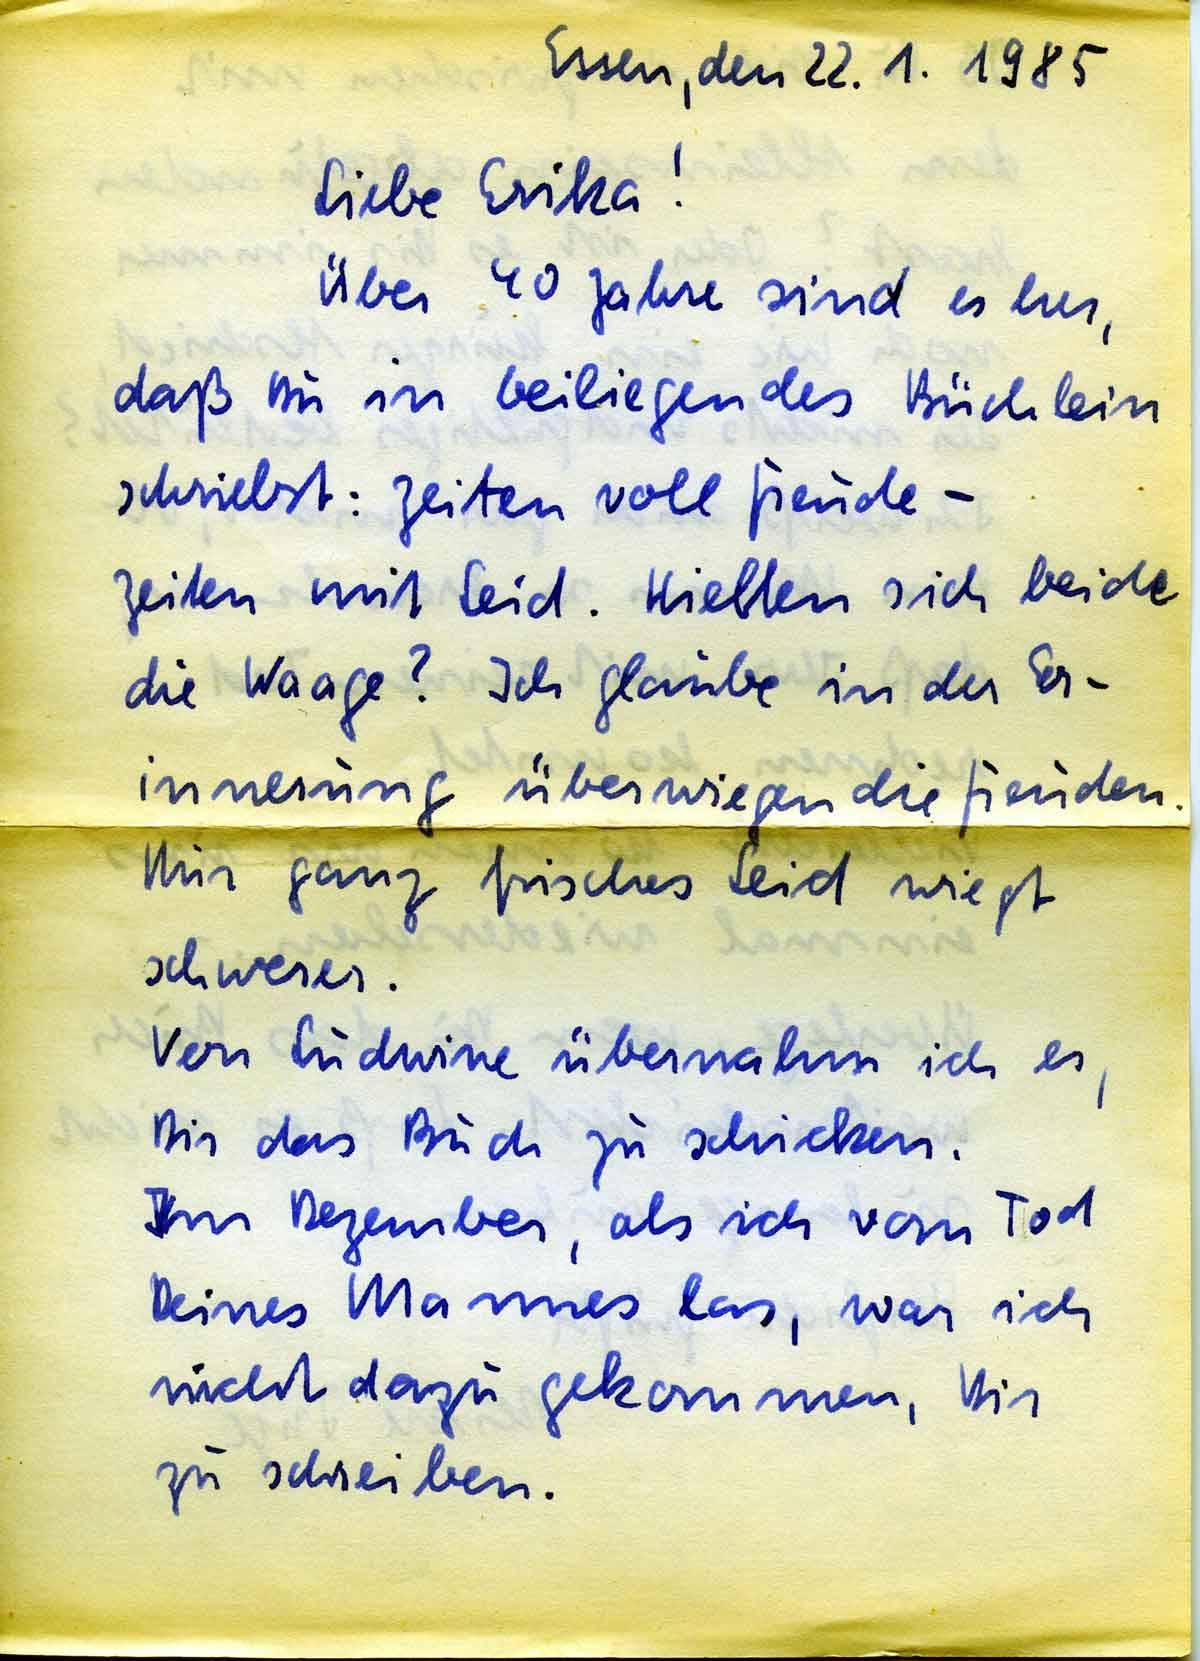 Essen, den 22. 1. 1985
Liebe Erika!
Über 40 Jahre sind es her,
daß Du in beiliegendes Büchlein
schriebst: Zeiten voll Freude –
Zeiten mit Leid. Hielten sich beide
die Waage? Ich glaube in der Er-
innerung überwiegen die Freuden.
Nur ganz frisches Leid wiegt
schwerer.
Von Ludwine übernahm ich es,
Dir das Buch zu schicken.
Im Dezember, als ich vom Tod
Deines Mannes las, war ich
nicht dazu gekommen, Dir
zu schreiben.